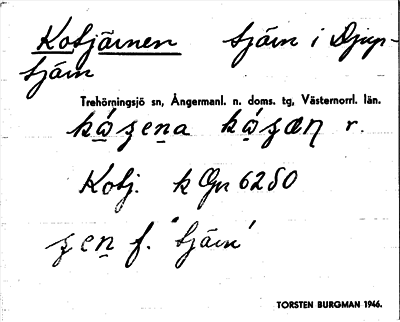 Kotjärnen tjärn i Djup-
tjärn
Trehörningsjö sn, Ångermanl. n. doms. tg, Västernorrl. län.
r.
Kotj. k Gn 6250
f. "tjärn"
TORSTEN BURGMAN 1946.